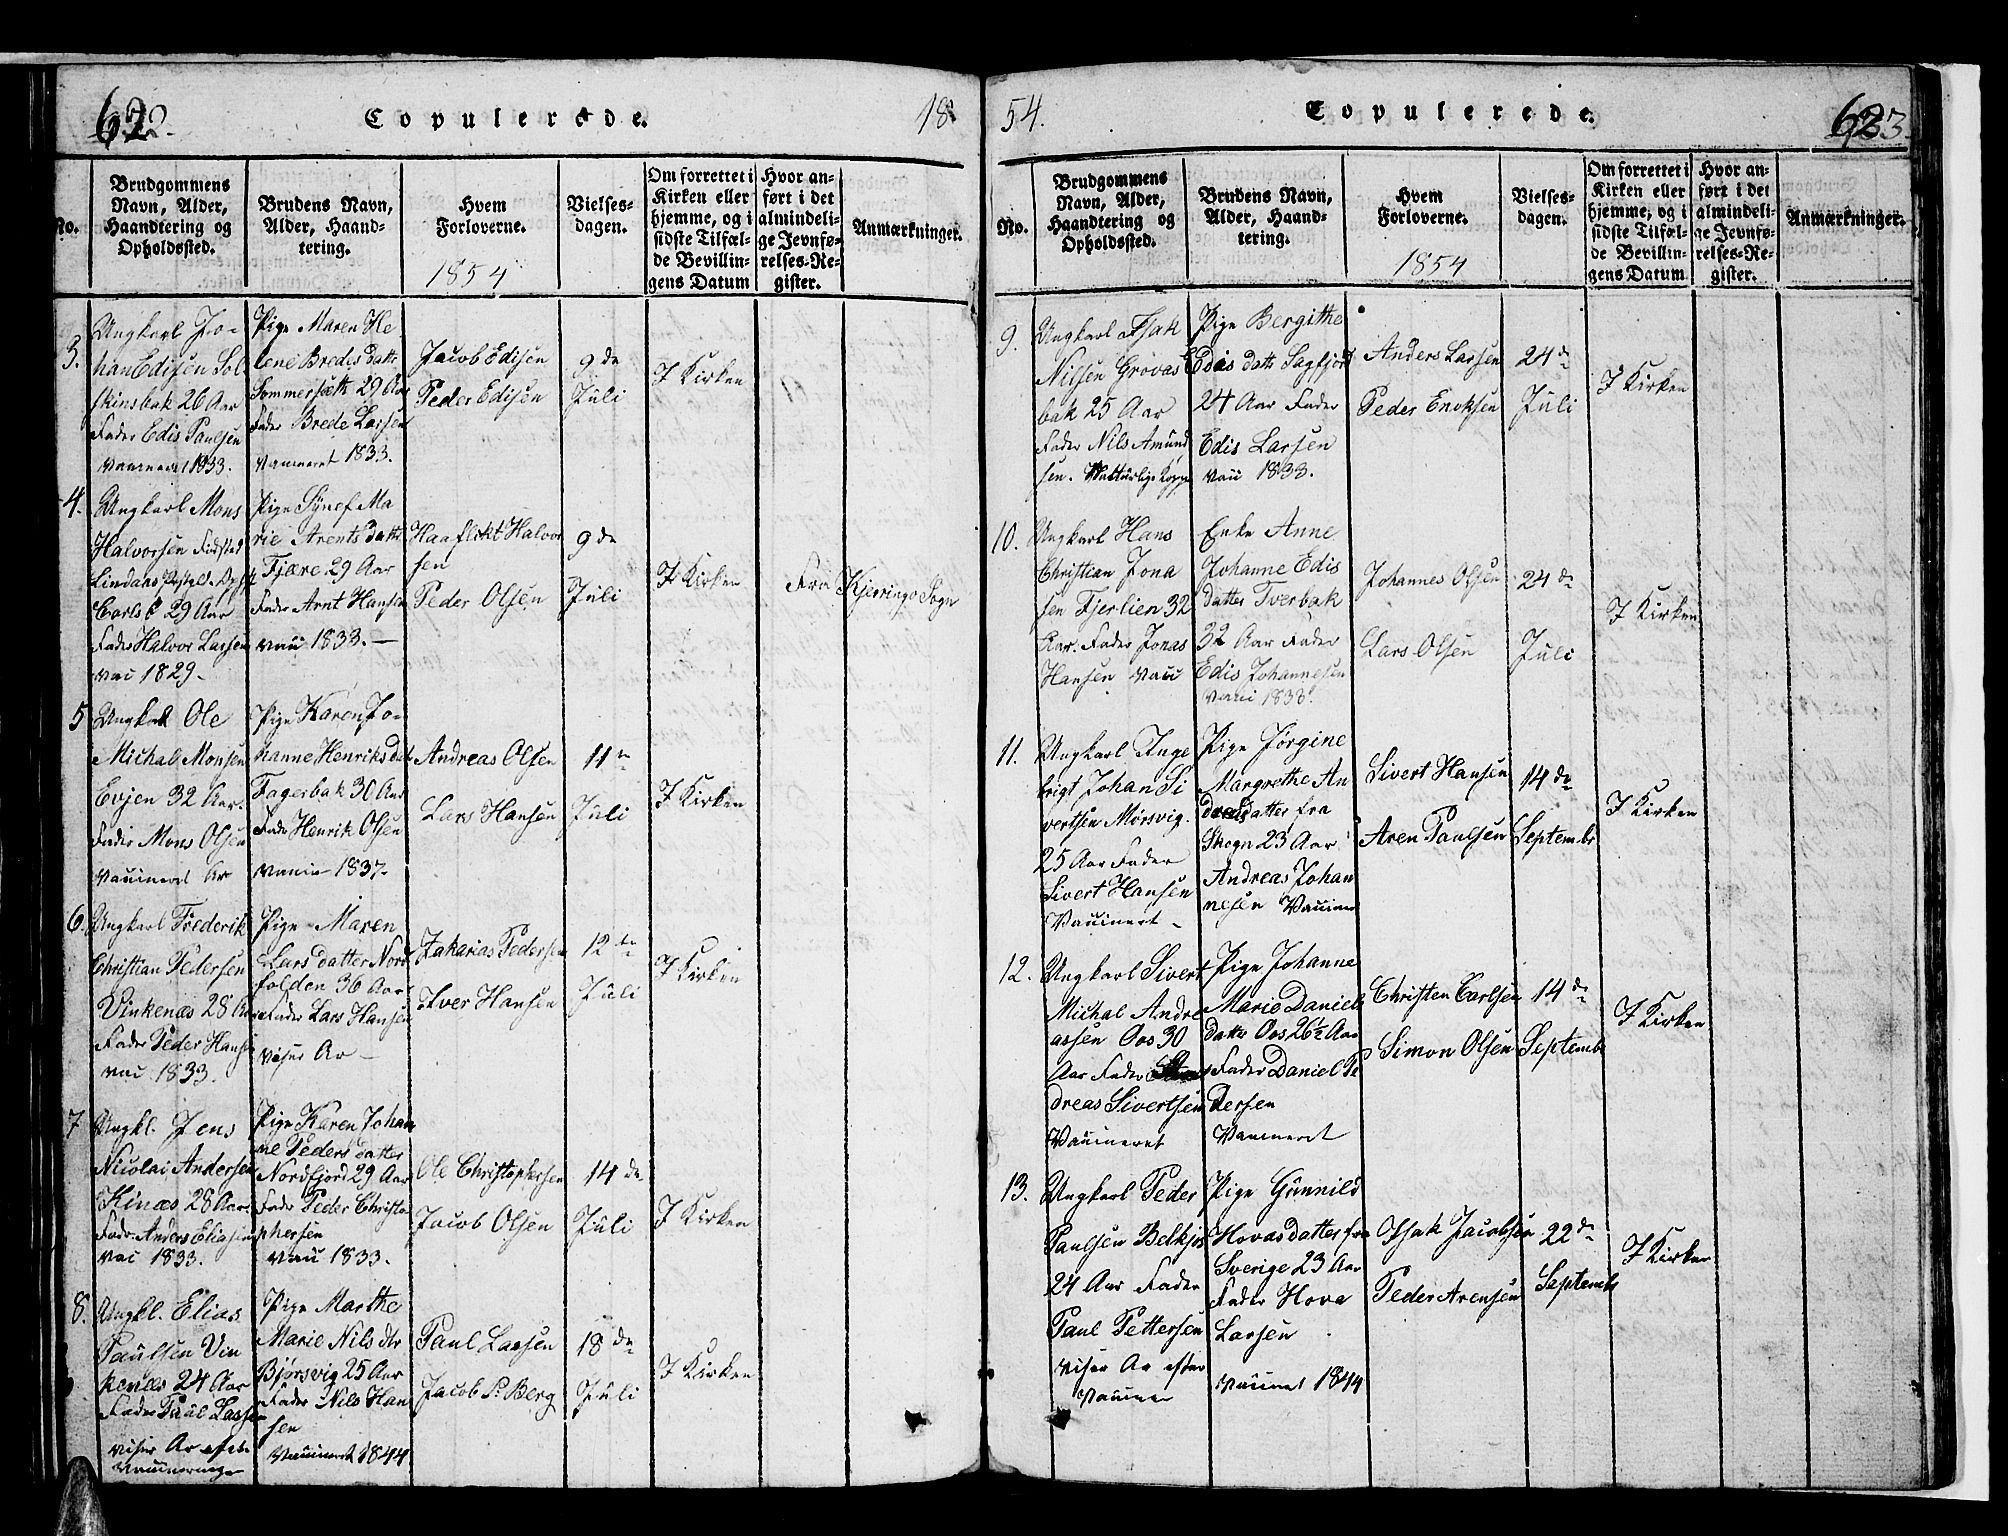 622.
Copulerede.
18
No.
Brudgommens
Navn, Alder,
Haandtering og
Opholdssted.
Brudens Navn,
Alder, Haand-
tering.
Hvem
Forloverne.
1854
Vielses-
dagen.
Om forrettet i
Kirken eller
hjemme, og i
sidste Tilfæl-
de Bevillin-
gens Datum
Hvor an-
ført i det
almindeli-
ge Jevnfø-
relses-Re-
gister.
Anmærkninger.
3.
Ungkarl Jo-
han Edisen Sol
skinsbak 26 Aar
Fader Edis Paulsen
Vacineret 1833.
Pige Maren He
lene Bredes datte
Sommersæth 29 Aar
Fader Brede Larsen
Vaineret 1833.
Jacob Edisen
Peder Edisen
9 de
Juli
I Kirken
4.
Ungkarl Mons
Halvorsen Fidsted
Lindaas
29 Aar
Fader Halvor Larsen
vac 1829.
Pige Synef Ma
rie Arents datte
Fjære 29 Aar
Fader Arnt Hansen
vac 1833. —
Halvor
sen
Peder Olsen
9 de
Juli
I Kirken
Fra Kjerringø Sogn
5
Ungkarl Ole
Michal Monsen
Evjen 32 Aar.
Fader Mons Olsen
Vacineret Ar
Pige Karen Jo-
hanne Henriks dat
Fagerbak 30 Aar
Fader Henrik Olsen
1837.
Andreas Olsen
Lars Hansen
11 te
Juli
I Kirken
6.
Ungkarl Frederik
Christian Pedersen
Vinkenæs 28 Aar
Fader Peder Hansen
vac 1833.
Pige Maren
Lars datter Nord
folden 36 Aar
Fader Lars Hansen
viser Ar —
Zakarias Pedersen
Iver Hansen
12 te
Juli
I Kirken
7
Ungkl. Jens
Nicolai Andersen
Kinæs 28 Aar.
Fader Anders Eliasen
vac 1833.
Pige Karen Johan
ne Peders datter
Nordfjord 29 Aar
Fader Peder Christo
phersen
vac 1833.
Ole Christophersen
Jacob Olsen
14 de
Juli
I Kirken
8.
Ungkl. Elias
Paulsen Vin
kenæs 24 Aar
Fader Paul Larsen
viser Ar efter
Vaccineringe
Pige Marthe
Marie Nils dtr
Bjørsvig 25 Aar
Fader Nils Han
sen
Vaccineret 1844
Paul Larsen
Jacob P. Berg
18 de
Juli
I Kirken
54.
Copulerede.
623.
No.
Brudgommens
Navn, Alder,
Haandtering og
Opholdssted.
Brudens Navn,
Alder, Haand-
tering.
Hvem
Forloverne.
1854
Vielses-
dagen.
Om forrettet i
Kirken eller
hjemme, og i
sidste Tilfæl-
de Bevillin-
gens Datum
Hvor an-
ført i det
almindeli-
ge Jevnfø-
relses-Re-
gister.
Anmærkninger.
9.
Ungkarl Isak
Nilsen Grovas
bak 25 Aar
Fader Nils Amund
sen. Natturlige Kopp
Pige Bergithe
Edis datte Sagfjord
24 Aar Fader
Edis Larsen
vac 1833.
Anders Larsen
Peder Enoksen
24 de
Juli
I Kirken
10.
Ungkarl Hans
Christian Jona
sen Fjerlien 32
Aar. Fader Jonas
Hansen vac
Enke Anne
Johanne Edis
datter Tverbak
32 Aar Fader
Edis Johannesen
1833.
Johannes Olsen
Lars Olsen
24 de
Juli
I Kirken
11.
Ungkarl Inge
brigt Johan Si
vertsen Mørsvig.
25 Aar Fader
Sivert Hansen
Vaccineret —
Pige Jørgine
Margrethe An
dreasdatter fra
Skogn 23 Aar
Andreas Johan
nesen Vacciner
Sivert Hansen
Aren Paulsen
14 de
Septembr
I Kirken
12.
Ungkarl Sivert
Michal Andre
assen Oos 30
Aar Fader
dreas Sivertsen
Vaccineret
Pige Johanne
Marie Daniels
datter Oos 26½ Aar
Fader Daniel Pe
dersen
Vaccineret
Christen Carlsen
Simon Olsen
14 de
Septembr
I Kirken
13.
Ungkarl Peder
Paulsen
24 Aar Fader
Paul Pettersen
viser Ar efter
Vaccine
Pige Gunnild
Hovas datter fra
Sverige 23 Aar
Fader Hova
Larsen
Vaccinet 1844
Isak Jacobsen
Peder Arensen
22 de
Septembr
I Kirken